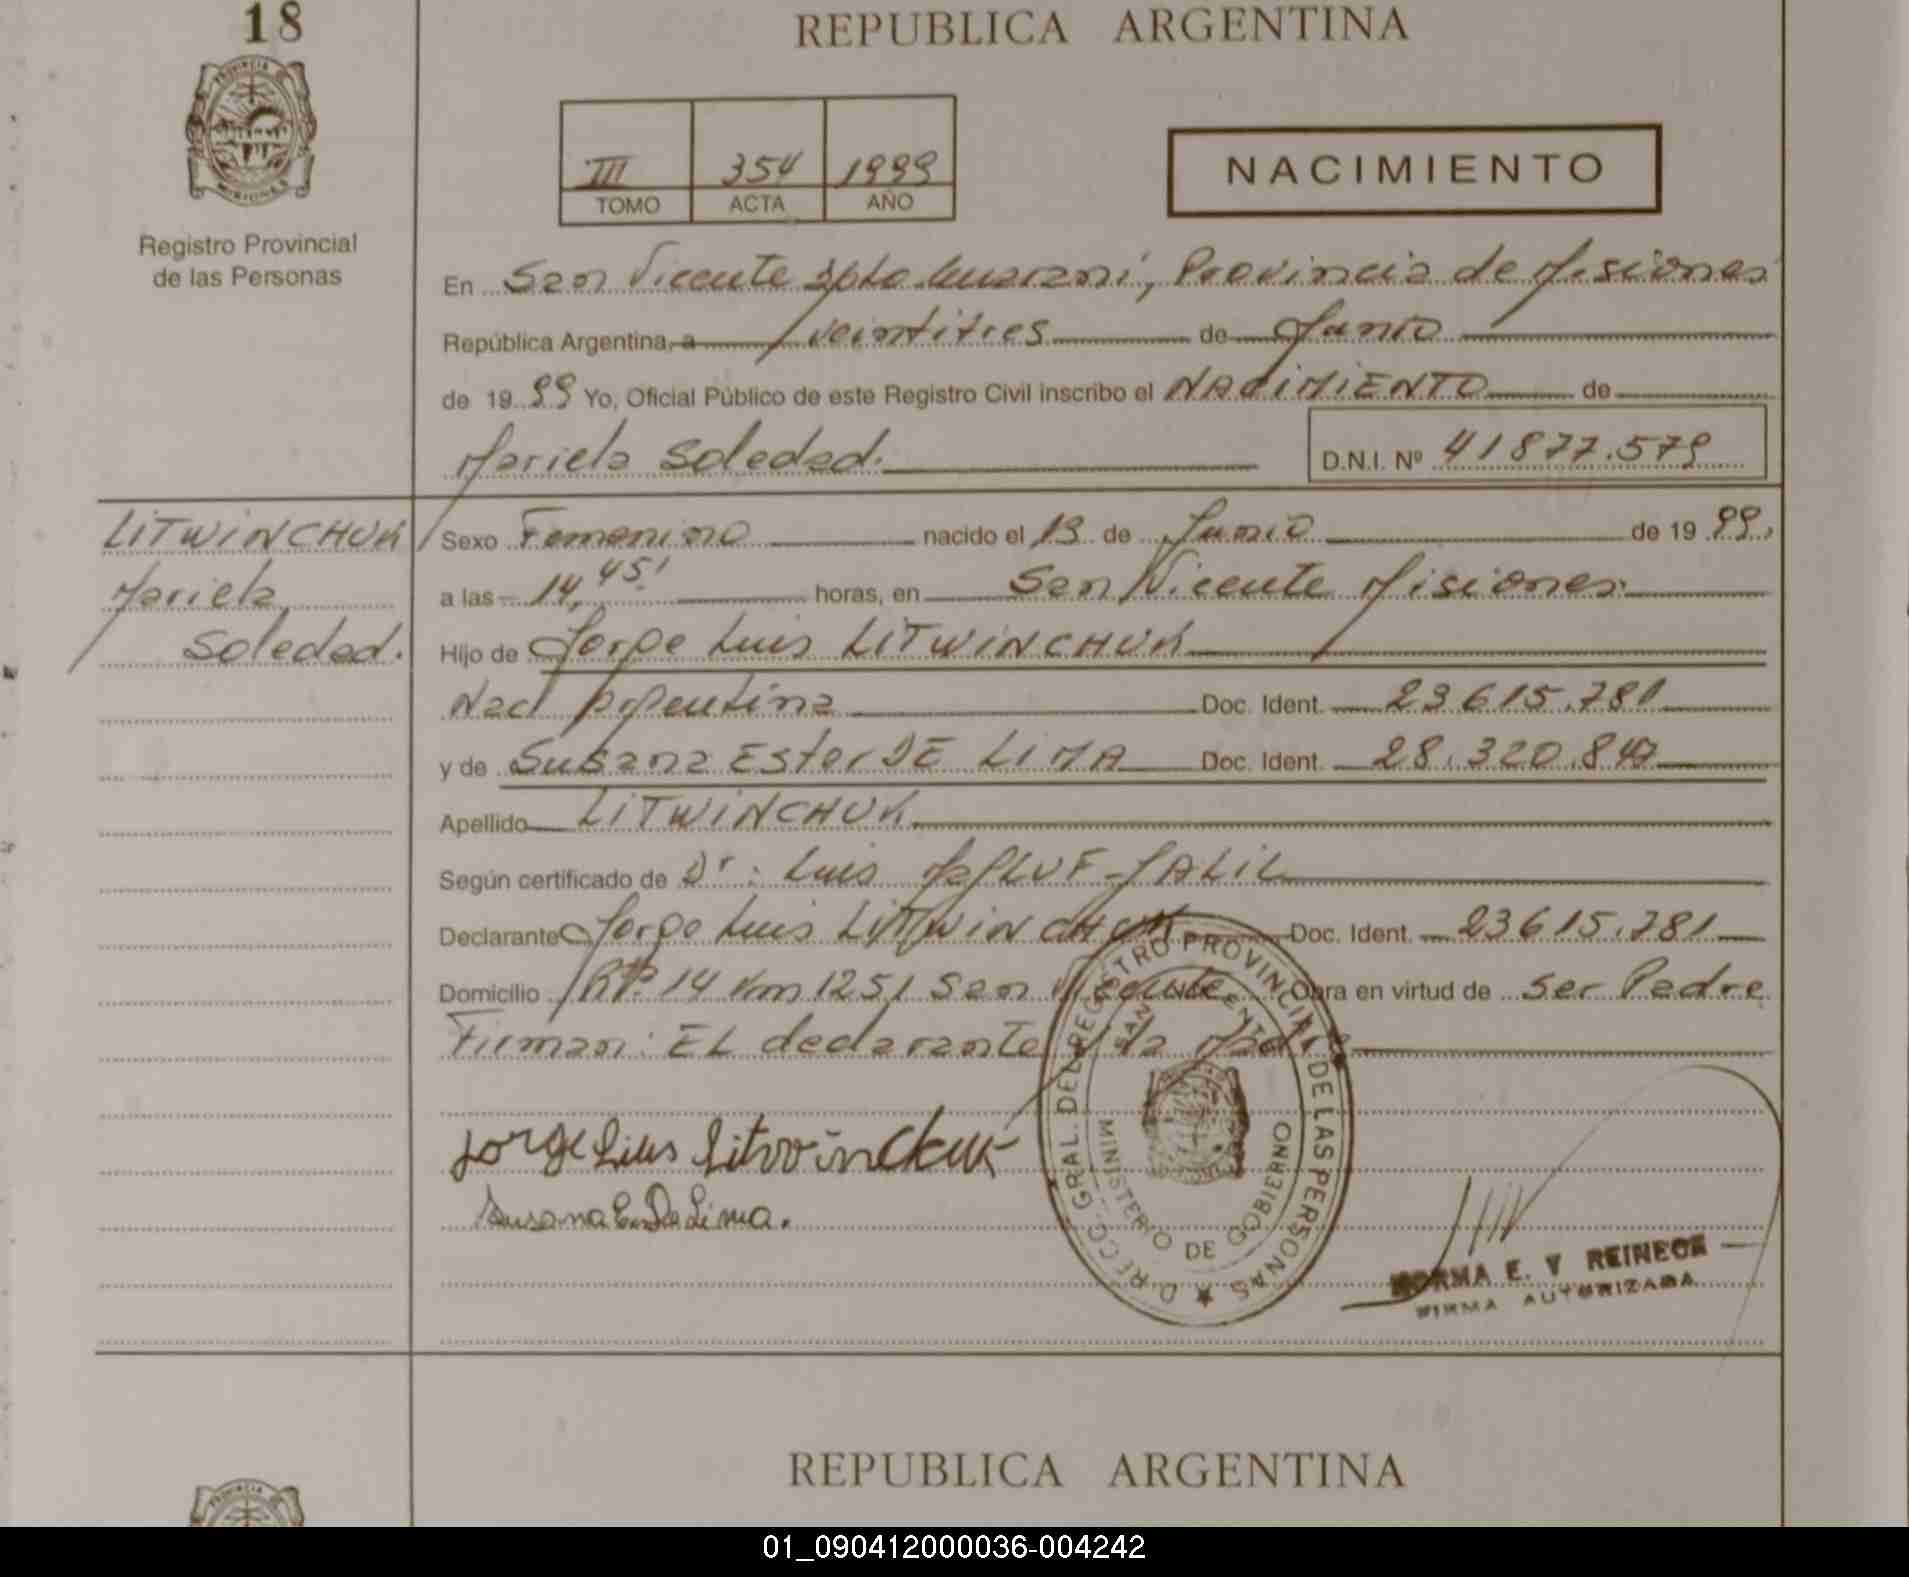 18
REPUBLICA ARGENTINA
PROVINCIA DE
MISIONES
Registro Provincial
de las Personas
III 354 1999
TOMO ACTA AÑO
NACIMIENTO
En San Vicente Dpto Guarani, Provincia de Misiones
República Argentina, a veintitres de Junio
de 1999 Yo, Oficial Público de este Registro Civil inscribo el NACIMIENTO de
Mariela Soledad.
D.N.I. Nº 41877.579
LITWINCHUK
Mariela
Soledad.
Sexo Femenino nacido el 13 de Junio de 1999,
a las 14,45' horas, en San Vicente Misiones.
Hijo de Jorge Luis LITWINCHUK
Nad Argentina Doc. Ident. 23615.781
y de Susana Ester DE LIMA Doc. Ident. 28.320.847
Apellido LITWINCHUK
Según certificado de Dr: Luis JALIL
Declarante Jorge Luis LITWINCHUK Doc. Ident. 23615.781
Domicilio Rta. 14 Km 1251 San Vicente Obra en virtud de ser Padre
Firman: EL declarante y la Madre
Jorge Luis Litwinchuk
Susana E. De Lima.
D. RECC. GRAL. DEL REGISTRO PROVINCIAL DE LAS PERSONAS
SAN VICENTE
MINISTERIO DE GOBIERNO
NORMA E. V REINECK
FIRMA AUTORIZADA
REPUBLICA ARGENTINA
PROVINCIA DE
01_090412000036-004242